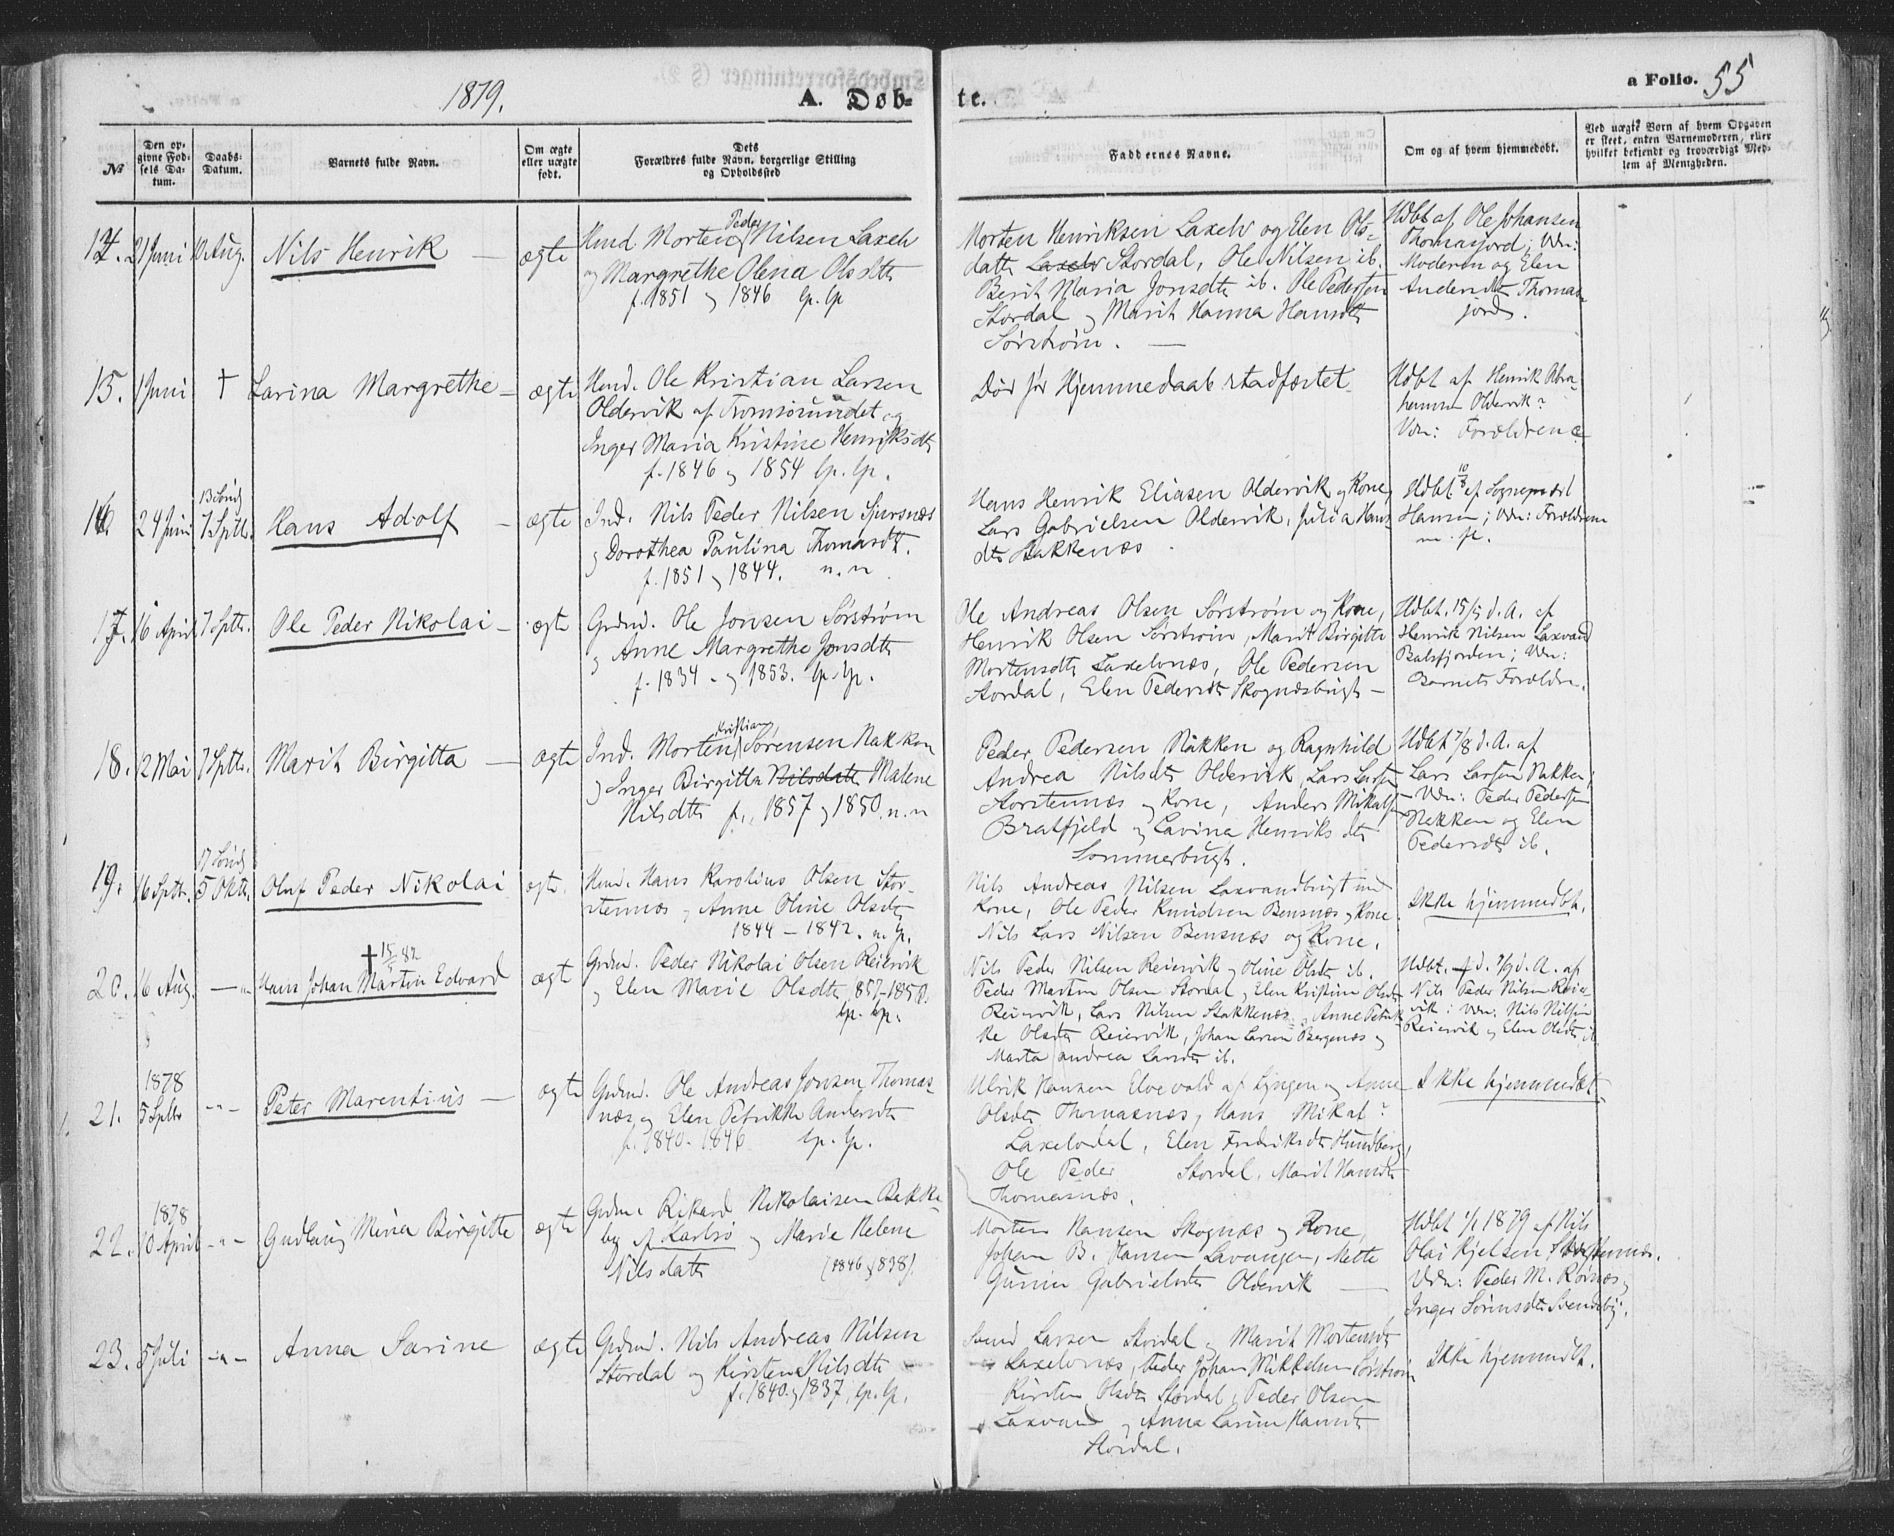 1879.
A. Døb-
te.
a Folio. 55
№
Den op-
givne Fød-
sels Da-
tum.
Daabs-
Datum.
Barnets fulde Navn.
Om ægte
eller uægte
født.
Dets
Forældres fulde Navn, borgerlige Stilling
og Opholdssted
Faddernes Navne.
Om og af hvem hjemmedøbt.
Ved uægte Børn af hvem Opgaven
er skeet, enten Barnemoderen, eller
hvilket bekjendt og troværdigt Med-
lem af Menigheden.
14. 21 Juni 10 Aug. Nils Henrik — ægte
Peder
Mend Morten Nilsen Laxelv
og Margrethe Olena Olsdtr
f. 1851 og 1846 lp. lp
Morten Henriksen Laxelv og Elen Ols-
datter Laxelv Stordal, Ole Nilsen ib.
Berit Maria Jonsdtr ib. Ole Pedersen
Stordal og Marit Hanna Hansdtr
Sørstrøm. —
Hdbt af Ole Johansen
Thomasjord; Vdn:
Moderen og Elen
Andersdtr Thomas-
jord.
15. 1 Juni † Larina Margrethe — ægte
Hmd. Ole Kristian Larsen
Oldervik af Tromsøsundet og
Inger Maria Kristine Henriksdtr
f. 1846 og 1854 lp. lp.
Død før Hjemmedaab stadfæstet
Hdbt af Henrik Abra-
hamsen Oldervik?
Vdn: Forældrene
16. 24 Juni 13 Sønd 7 Sptb. Hans Adolf — ægte
Ind. Nils Peder Nilsen Sjursnæs
og Dorothea Paulina Thomasdtr.
f. 1851 og 1844. n. n
Hans Henrik Eliasen Oldervik og Kone,
Lars Gabrielsen Oldervik, Julia Hans-
dtr Stakkenæs.
Hdbt 10/8 af Sognepræst
Hansen; Vdn: Forældrene
m. fl.
17. 16 April 7 Sptb. Ole Peder Nikolai — ægte
Grdmd. Ole Jonsen Sørstrøm
og Anne Margrethe Jonsdtr
f. 1834 - og 1853. lp. lp.
Ole Andreas Olsen Sørstrøm og Kone,
Henrik Olsen Sørstrøm, Marit Birgitte
Mortensdtr Laxelvnæs, Ole Pedersen
Stordal, Elen Pedersdtr Skognæsbugt —
Hdbt. 15/5 d. A. af
Henrik Nilsen Laxvand
Balsfjorden; Vdn:
Barnets Forældre.
18. 12 Mai 7 Sptb. Marit Birgitta — ægte
Kristian
Ind. Morten Sørensen Nakken
og Inger Birgitta Nilsdatter Malene
Nilsdtr f. 1857 og 1850. n. n
Peder Pedersen Nakken og Ragnhild
Andrea Nilsdtr Oldervik, Lars Larsen
Storstennæs og Kone, Anders Mikalsen
Bratfjeld og Lavina Henriksdtr
Sommerbugt.
Hdbt 7/8 d. A. af
Lars Larsen Nakken;
Vdn: Peder Pedersen
Nakken og Elen
Pedersdtr ib.
19. 16 Sptb. 17 Sønd 5 Oktb. Oluf Peder Nikolai ægte.
Hmd. Hans Karolius Olsen Stor-
stennæs og Anne Oline Olsdtr
1844 — 1842. n. lp.
Nils Andreas Nilsen Laxvandbugt med
Kone, Ole Peder Knudsen Bensnæs og Kone
Nils Lars Nilsen Bensnæs og Kone.
Ikke hjemmedbt.
20. 16 Aug. — „ — † 15/5 82 Hans Johan Martin Edvard ægte
Grdmd. Peder Nikolai Olsen Reiervik
og Elen Marie Olsdtr, 1857-1850.
lp. lp.
Nils Peder Nilsen Reiervik og Oline Olsdtr ib.
Peder Martin Olsen Stordal og Elen Kristine Olsdtr
Reiervik, Lars Nilsen Stakkenæs, Anne Petrik-
ke Olsdtr Reiervik, Johan Larsen Bergenæs og
Marta Andrea Larsdtr ib.
Hdbt. d. 7/9 d. A. af
Nils Peder Nilsen Reier-
vik; Vdn: Nils Nilsen
Reiervik og Elen Olsdtr ib
21. 1878 5 Sptb — „ — Peter Marentius — ægte
Grdmd. Ole Andreas Jonsen Thomas-
næs og Elen Petrikke Andersdtr
f. 1840-1846 lp. lp.
Ulrik Hansen Elvevold af Lyngen og Anne
Olsdtr Thomasnæs, Hans Mikal?
Laxelvdal, Elen Fredriksdtr Hundberg,
Ole Peder Stordal, Marit Hansdtr
Thomasnæs.
Ikke hjemmedbt
22. 1878 10 April — „ — Gudlaug Mina Birgitte ægte
Grdmd. Rikard Nikolaisen Bakke-
by af Karlsø og Marie Helene
Nilsdatter (1846 og 1838).
Morten Hansen Skognæs og Kone,
Johan B. Hansen Lavangen, Mette
Gurine Gabrielsdtr Oldervik —
Hdbt 1/1 1879 af Nils
Olai Kjelsen Storstennæs.
Vdn: Peder M. Rørnæs og
Inger Sørensdtr Svendsby.
23. 5 Juli — „ — Anna Sarine ægte
Grdmd. Nils Andreas Nilsen
Stordal og Kirsten Nilsdtr
f. 1840 og 1837, lp. lp.
Svend Larsen Stordal og Marit Mortensdtr
Laxelvnæs, Peder Johan Mikkelsen Sørstrøm
Kirsten Olsdtr Stordal, Peder Olsen
Laxvand og Anna Larine Hansdtr
Stordal.
Ikke hjemmedbt.